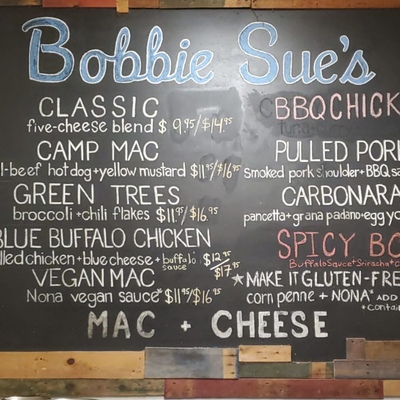 Bobbie Sue's
CLASSIC
five-cheese blend $9.95/$14.95
CAMP MAC
l-beef hotdog+yellow mustard $11.95/$16.95
GREEN TREES
broccoli+chili flakes $11.95/$16.95
BLUE BUFFALO CHICKEN
lled chicken+blue cheese+buffalo sauce $12.95
$17.95
VEGAN MAC
Nona vegan sauce* $11.95/$16.95
BBQ CHICK
PULLED POR
smoked pork shoulder+BBQ sa
CARBONARA
pancetta+grana padano+egg yo
SPICY BO
Buffalo Sauce+Sriracha+C
*MAKE IT GLUTEN-FRE
corn penne + NONA* ADD
*contai
MAC + CHEESE